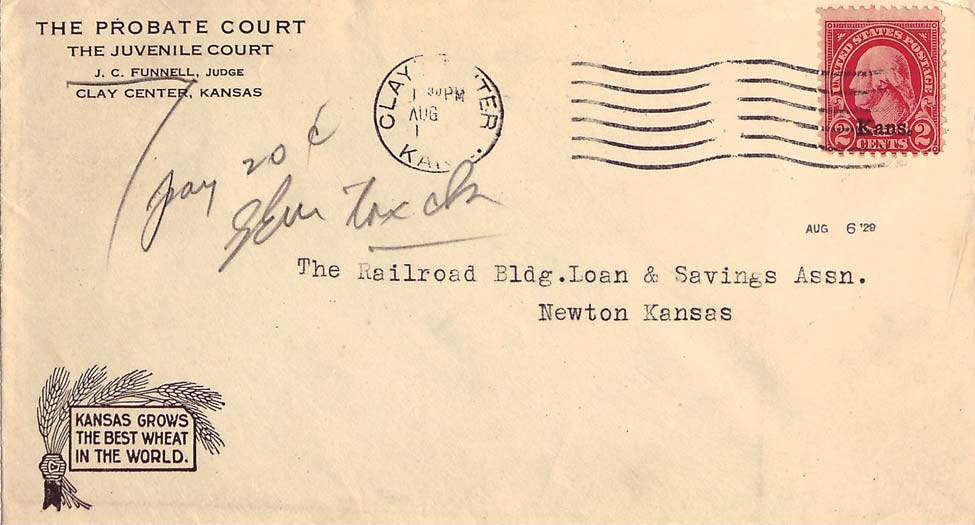 THE PROBATE COURT
THE JUVENILE COURT
J. C. FUNNELL, JUDGE
CLAY CENTER, KANSAS
CLAY TER
30 PM
AUG
1
KAN
UNITED STATES POSTAGE
Kans.
2 CENTS 2
pay 20 ¢
AUG 6 '29
The Railroad Bldg.Loan & Savings Assn.
Newton Kansas
KANSAS GROWS
THE BEST WHEAT
IN THE WORLD.